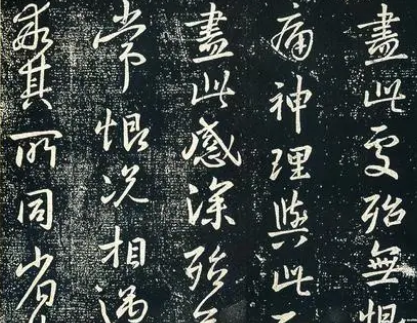 盡此處殆無恨
痛神理與此
盡此感深殆
常恨況相遇
其所同省